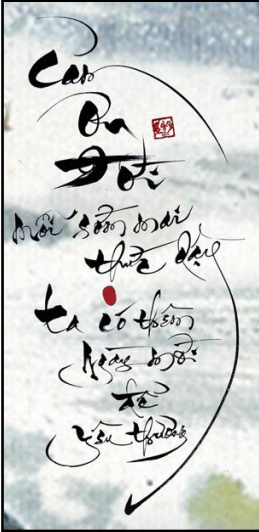 Cảm
Ơn
Đời
mỗi sớm mai
thức dậy
ta có thêm
ngày mới
để
yêu thương